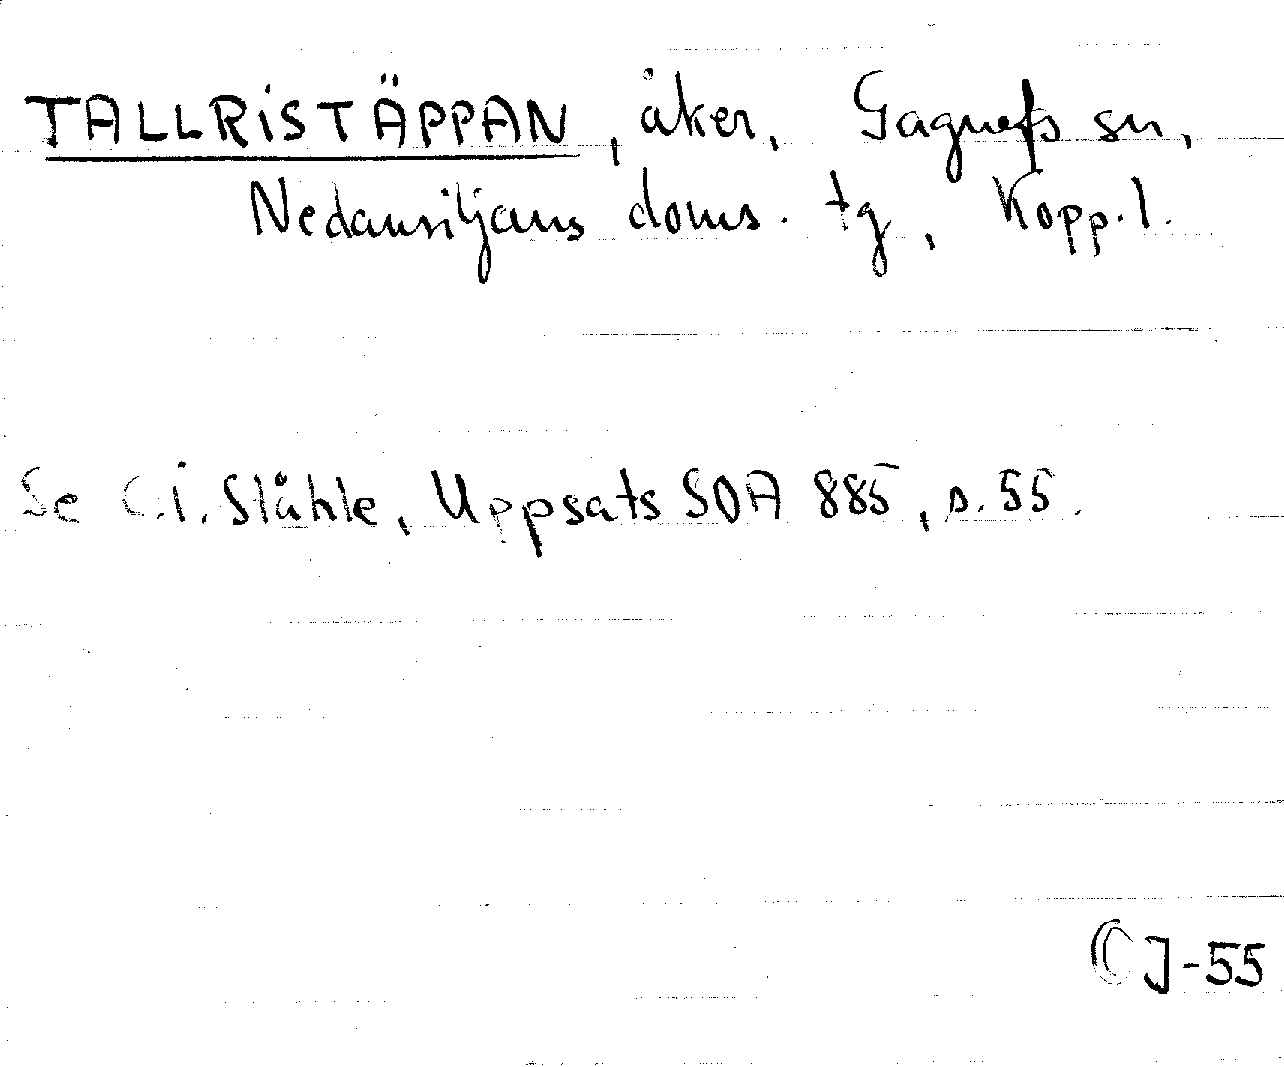 TALLRISTÄPPAN, åker, Gagnefs sn,
Nedansiljans doms. tg, Kopp.l.
Se C.I. Ståhle, Uppsats SOA 885, s. 55.
CJ-55